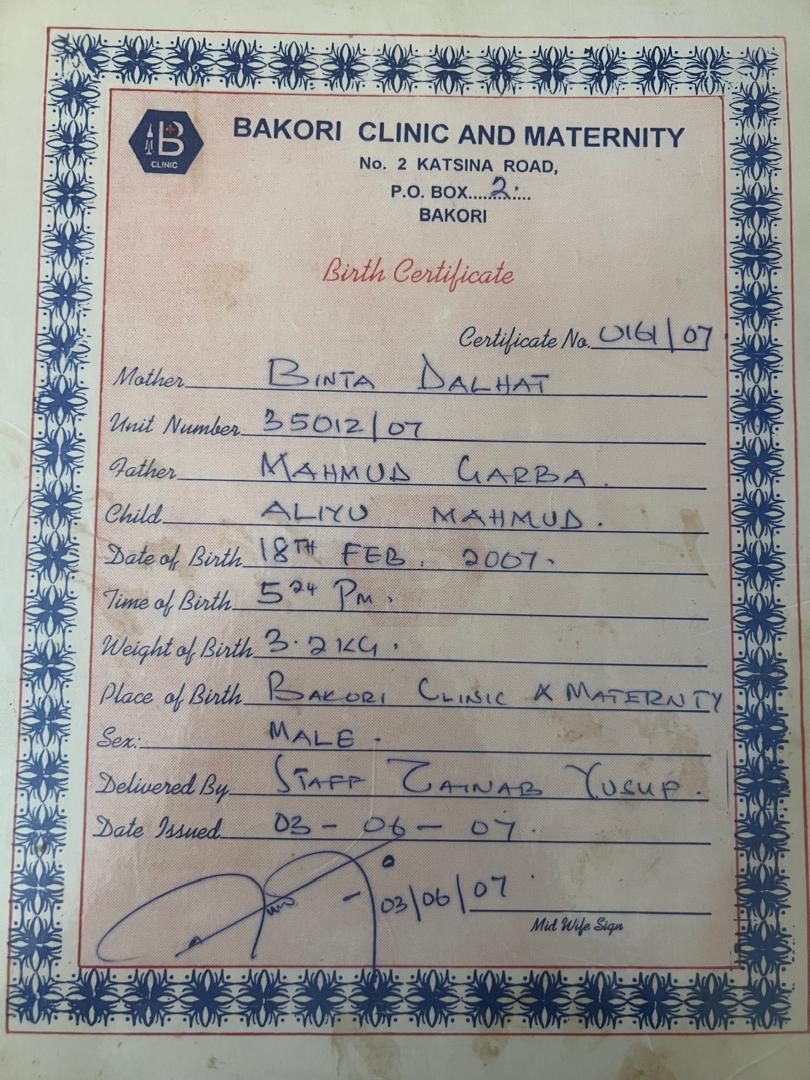 B
CLINIC
BAKORI CLINIC AND MATERNITY
No. 2 KATSINA ROAD,
P.O. BOX....2....
BAKORI
Birth Certificate
Certificate No. 0161/07
Mother BINTA DALHAT
Unit Number 35012/07
Father MAHMUD GARBA.
Child ALIYU MAHMUD.
Date of Birth 18TH FEB. 2007.
Time of Birth 5 24 PM.
Weight of Birth 3.2KG.
Place of Birth BAKORI CLINIC & MATERNITY
Sex: MALE.
Delivered By STAFF ZAINAB YUSUF.
Date Issued 03-06-07.
03/06/07
Mid Wife Sign